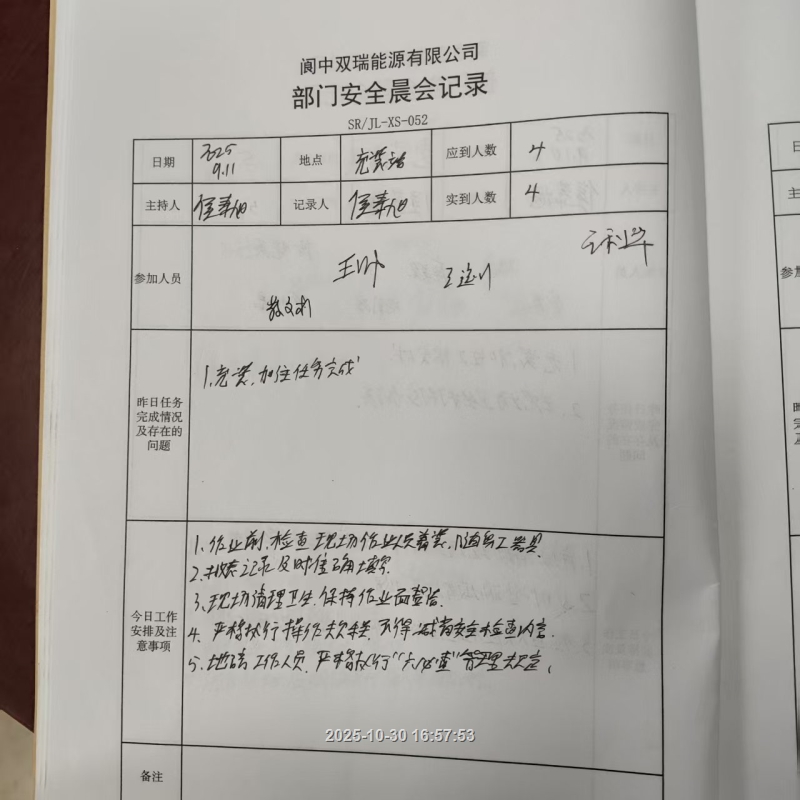 阆中双瑞能源有限公司
部门安全晨会记录
SR/JL-XS-052
日期 2025 9.11 地点 充装站 应到人数 4
主持人 记录人 实到人数 4
参加人员
昨日任务完成情况及存在的问题
1、充装、加注任务完成
今日工作安排及注意事项
1、作业前、检查现场作业人员着装、随身工器具
2、报表记录及时准确填写
3、现场清理卫生、保持作业面整洁
4、严格执行操作规程、不得减省安全检查内容
5、地磅工作人员、严格执行“六必查”管理规定、
备注
2025-10-30 16:57:53